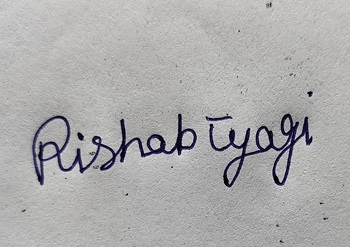 Rishab Tyagi